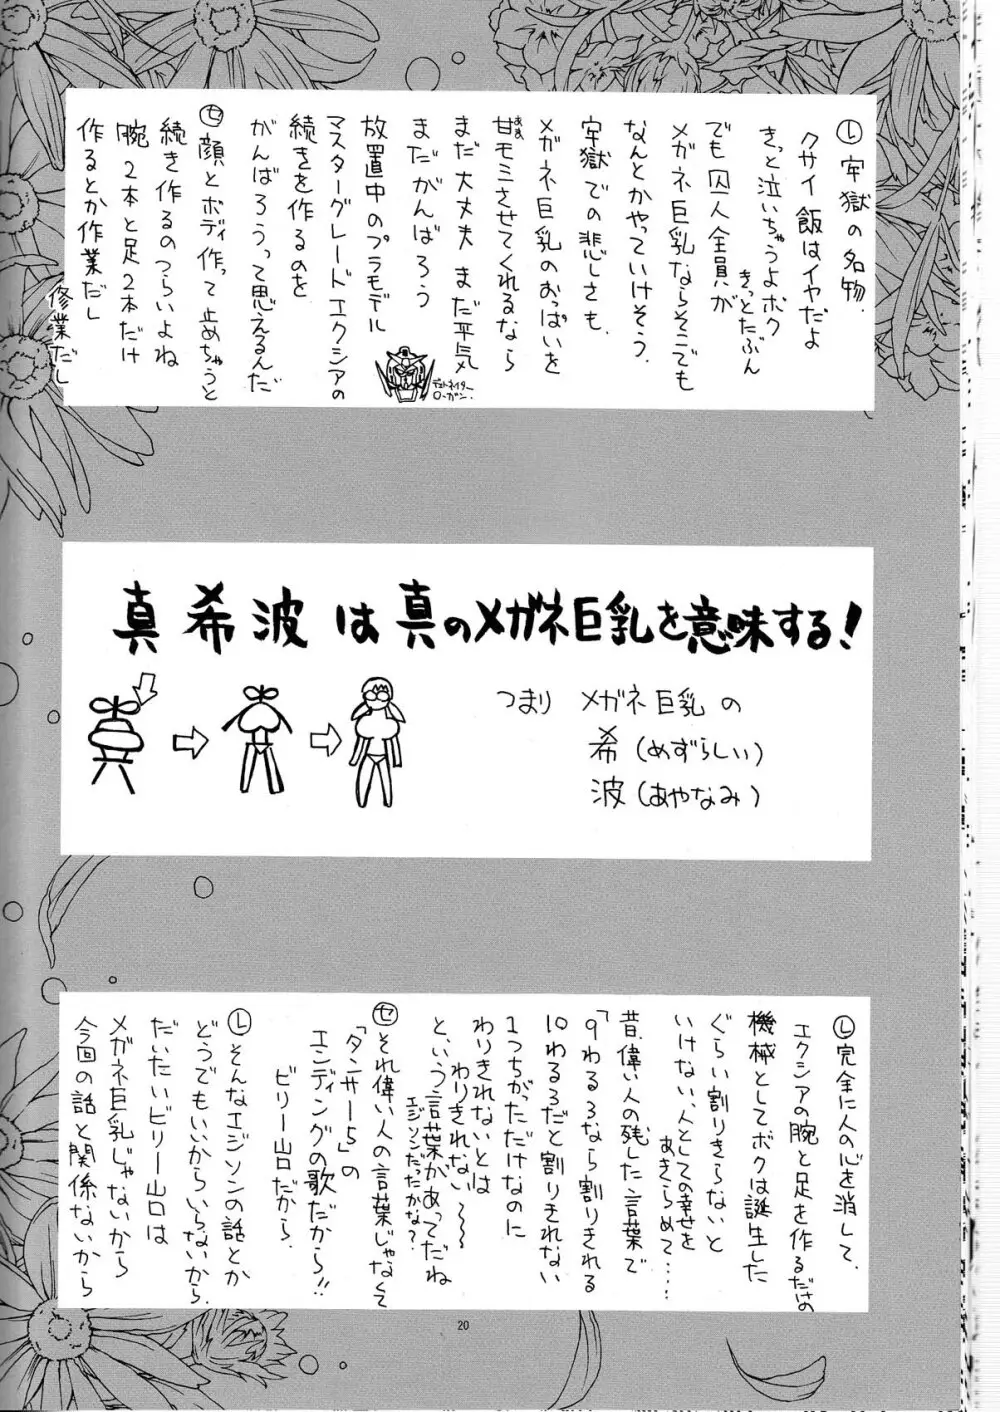 Ⓛ牢獄の名物、
クサイ飯はイヤだよ
きっと泣いちゃうよボク
きっとたぶん
でも囚人全員が
メガネ巨乳ならそこでも
なんとかやっていけそう。
牢獄での悲しさも、
メガネ巨乳のおっぱいを
甘モミさせてくれるなら
まだ大丈夫 まだ平気
まだがんばろう
放置中のプラモデル
マスターグレードエクシアの
続きを作るのを
がんばろうって思えるんだ
デトネイター
ローガン。
㋝顔とボディ作って止めちゃうと
続き作るのつらいよね
腕2本と足2本だけ
作るとか作業だし
修業だし
真希波は真のメガネ巨乳を意味する!
つまり メガネ巨乳の
希(めずらしい)
波(あやなみ)
Ⓛ完全に人の心を消して、
エクシアの腕と足を作るだけの
機械としてボクは誕生した
ぐらい割りきらないと
いけない、人としての幸せを
あきらめて……
昔、偉い人の残した言葉で
「9わる3なら割りきれる
10わる3だと割りきれない
1つちがっただけなのに
わりきれないとは
わりきれない〜〜
という言葉があってだね
エジソンだったかな?
㋝それ偉い人の言葉じゃなくて
「タンサー5」の
エンディングの歌だから!!
ビリー山口だから。
Ⓛそんなエジソンの話とか
どうでもいいからいらないから。
だいたいビリー山口は
メガネ巨乳じゃないから
今回の話と関係ないから
20